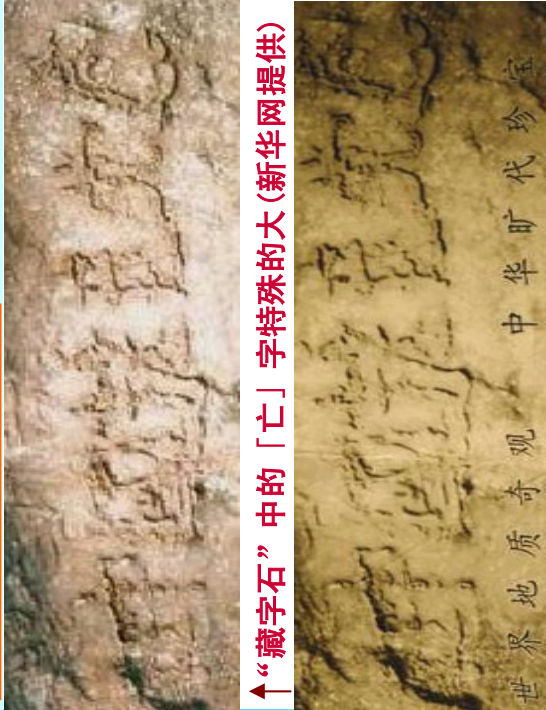 “藏字石” 中的「亡」字特殊的大(新华网提供)
世界地质奇观 中华旷代珍宝